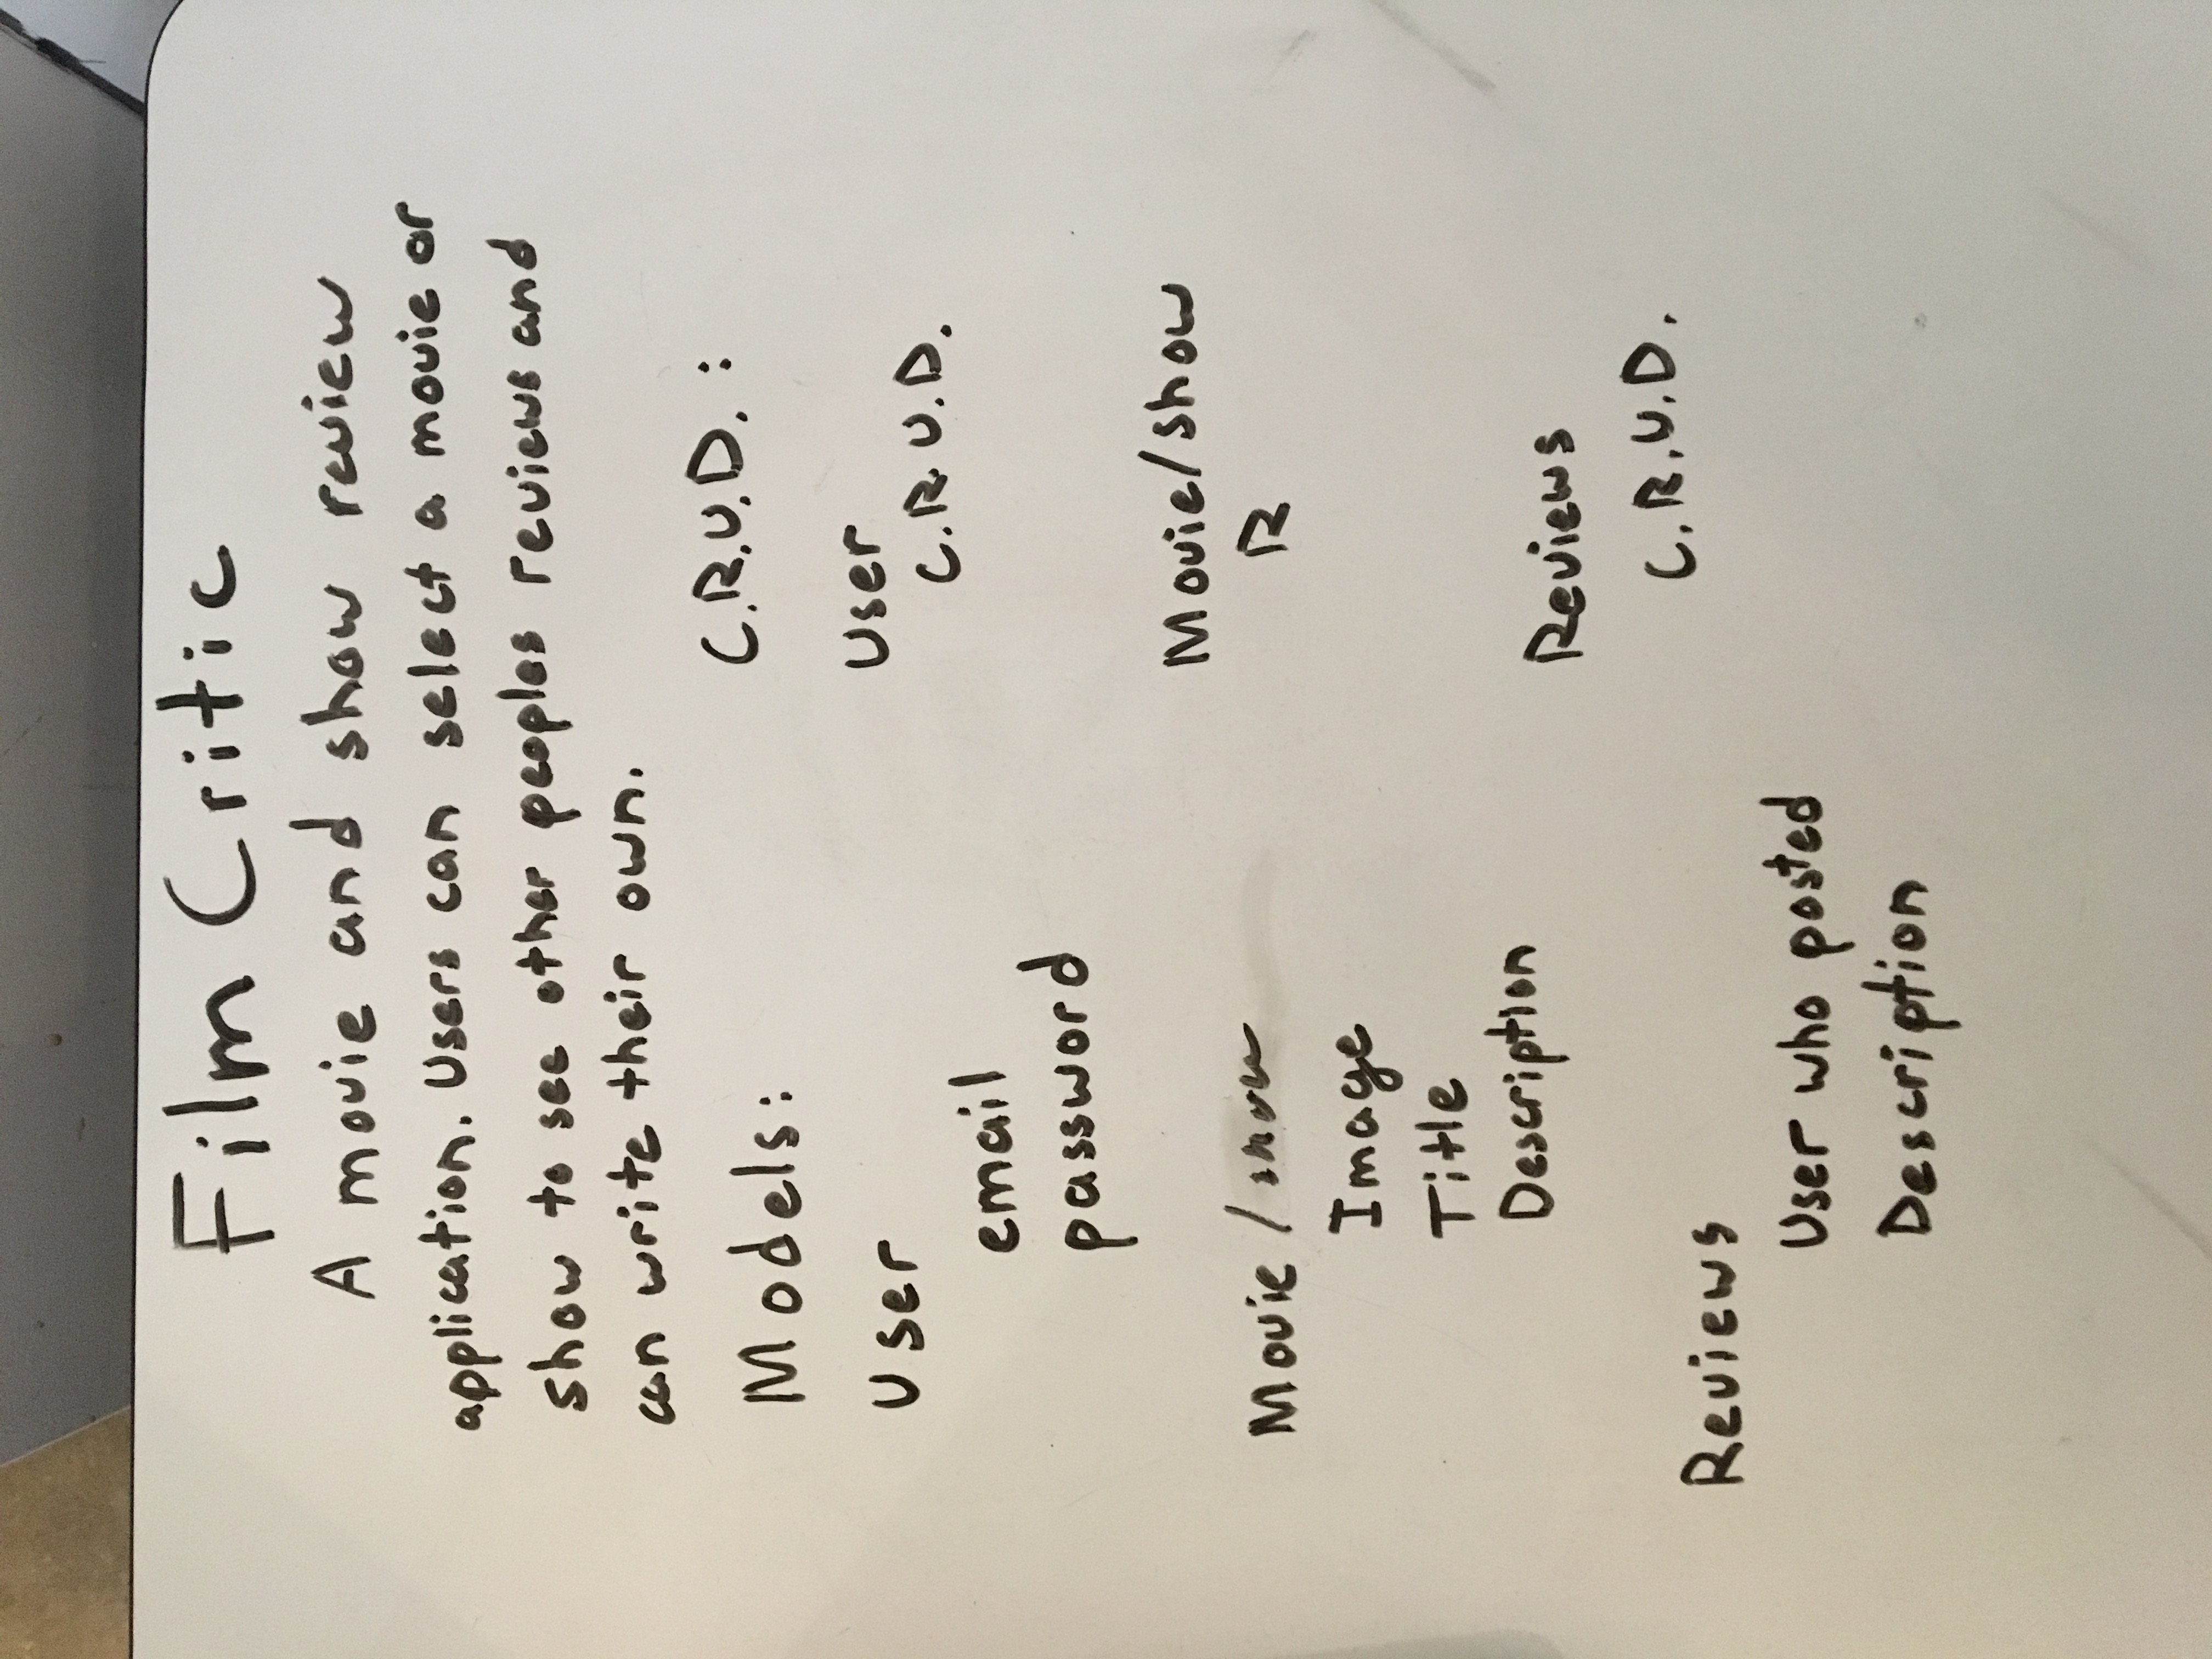 Film Critic
A movie and show review
application. Users can select a movie or
show to see other peoples reviews and
can write their own.
Models:
User
email
password
Movie / show
Image
Title
Description
Reviews
User who posted
Description
C.R.U.D. :
User
C.R.U.D.
Movie/show
R
Reviews
C.R.U.D.